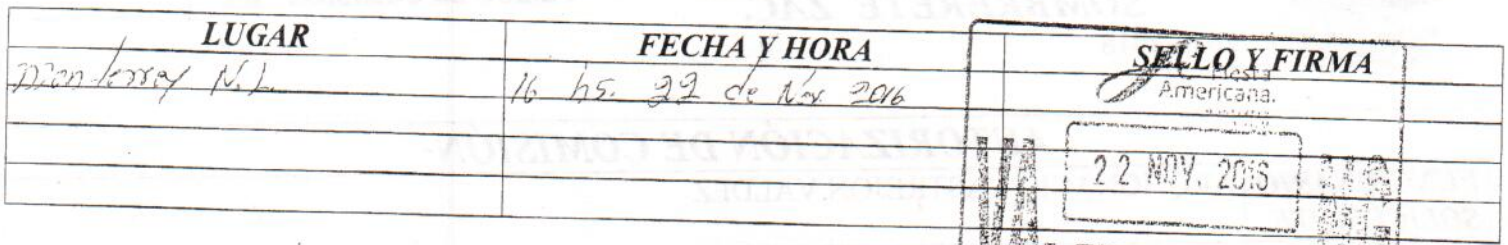 LUGAR FECHA Y HORA SELLO Y FIRMA
Monterrey N.L. 16 hs. 22 de Nov. 2016
Fiesta
Americana.
22 NOV. 2016